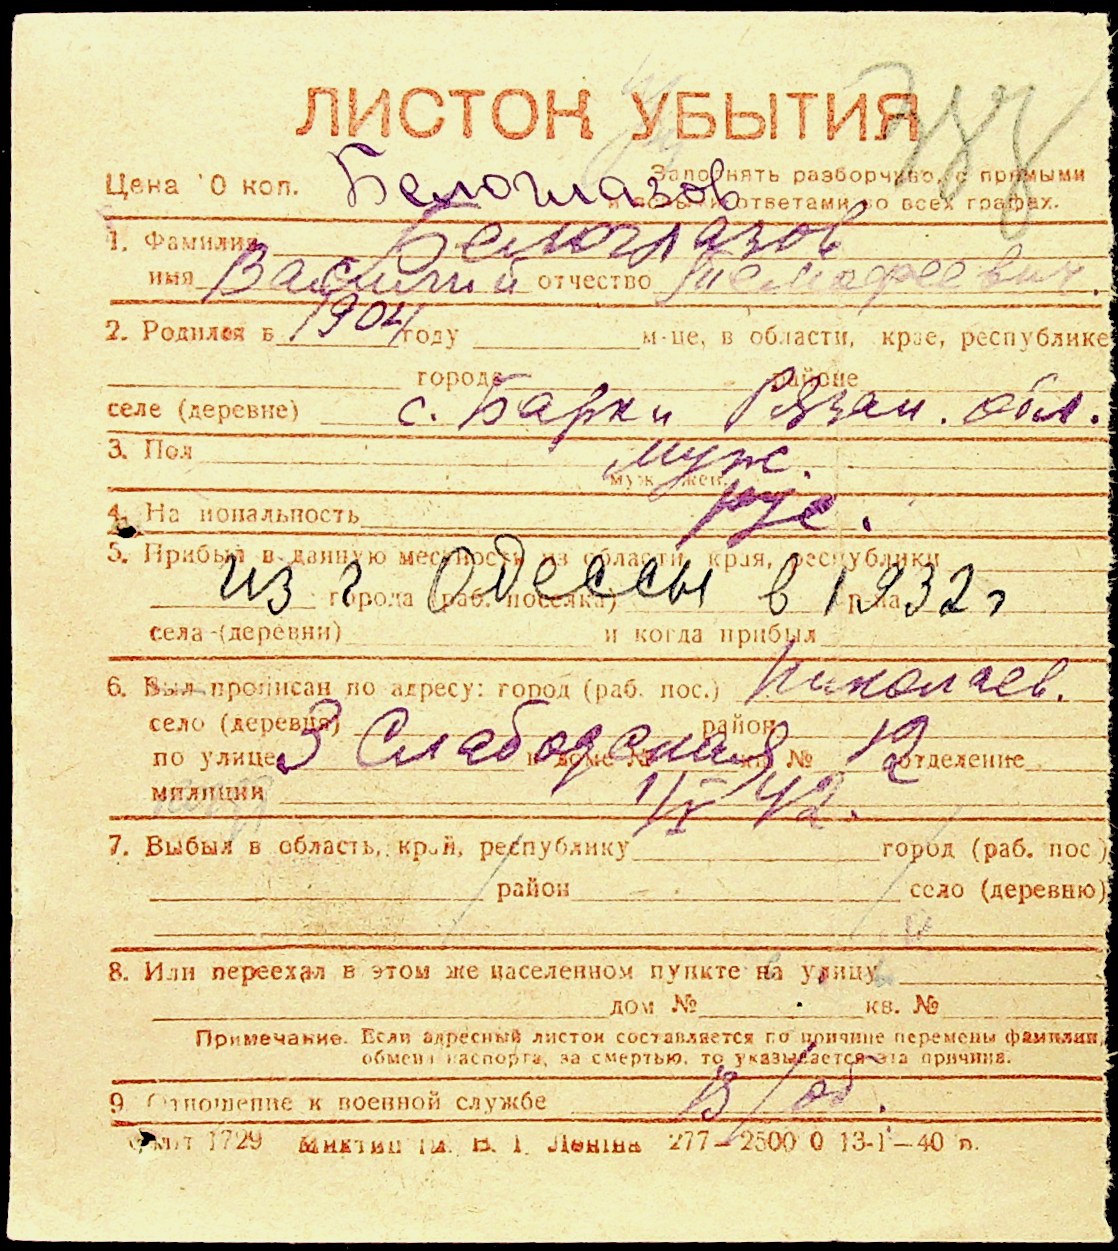 ЛИСТОК УБЫТИЯ
Цена 10 коп. Белоглазов Заполнять разборчиво, с прямыми
ответами во всех графах.
1. Фамилия Белоглазов
имя Василий отчество Тимофеевич.
2. Родился в 1904 году м-це, в области, крае, республике
города районе
селе (деревне) с. Барки Рязан. обл.
3. Пол муж.
муж. жен.
4. Национальность рус.
5. Прибыл в данную местность из области, края, республики
из г Одессы в 1932 г
города (раб. поселка) р-на
села (деревни) и когда прибыл
6. Был прописан по адресу: город (раб. пос.) Николаев.
село (деревня) район
по улице 3 Слабодская 12 в доме № кв. № отделение
милиции 1/IX 42.
7. Выбыл в область, край, республику город (раб. пос.)
район село (деревню)
8. Или переехал в этом же населенном пункте на улицу
дом № кв. №
Примечание. Если адресный листок составляется по причине перемены фамилии,
обмена паспорта, за смертью, то указывается эта причина.
9. Отношение к военной службе В/об.
1729 Ленiна 277—2500 0 13-I—40 п.